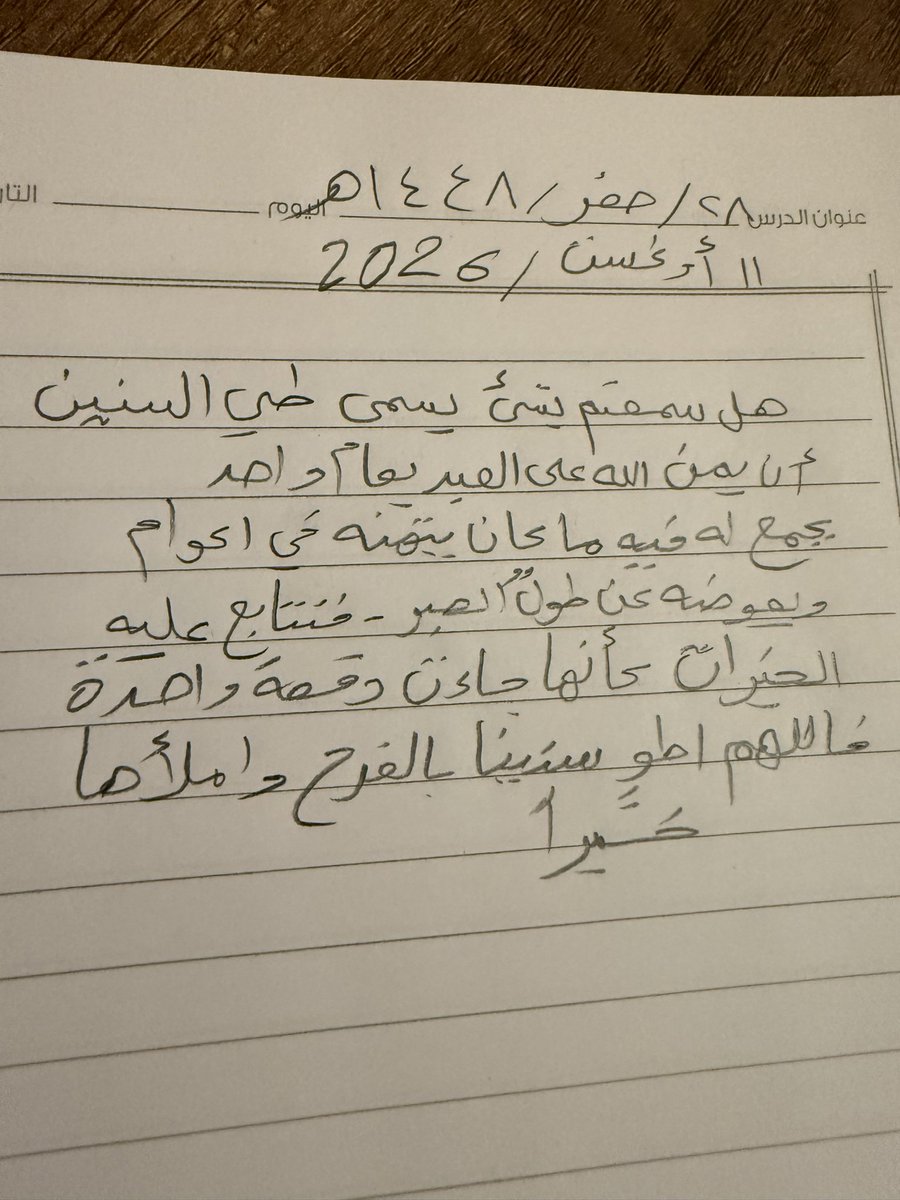 عنوان الدرس ٢٨/صفر/١٤٤٨هـ اليوم التا
١١ أوغسن/2026
هل سمعتم بشئ يسمى طي السنين
أن يمن الله على العبد بعام واحد
يجمع له فيه ما كان يتمنه في اعوام
ويعوضه عن طول الصبر - فتتابع عليه
الخيرات كأنها جاءت دفعة واحدة
فاللهم اطو سنيننا بالفرح واملأها
خيراً